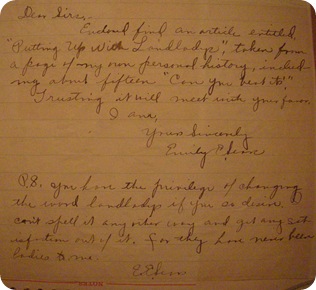 Dear Sirs,-
Enclosed find an article entitled,
"Putting Up With Landladys", taken from
a page of my own personal history, includ-
ing about fifteen "Can you beat its".
Trusting it will meet with your favor.
I am,
Yours Sincerely
Emily P.
P.S. you have the privilege of changing
the word landladys if you so desire,
can't spell it any other way and get any sat-
isfaction out of it, for they have never been
ladies to me.